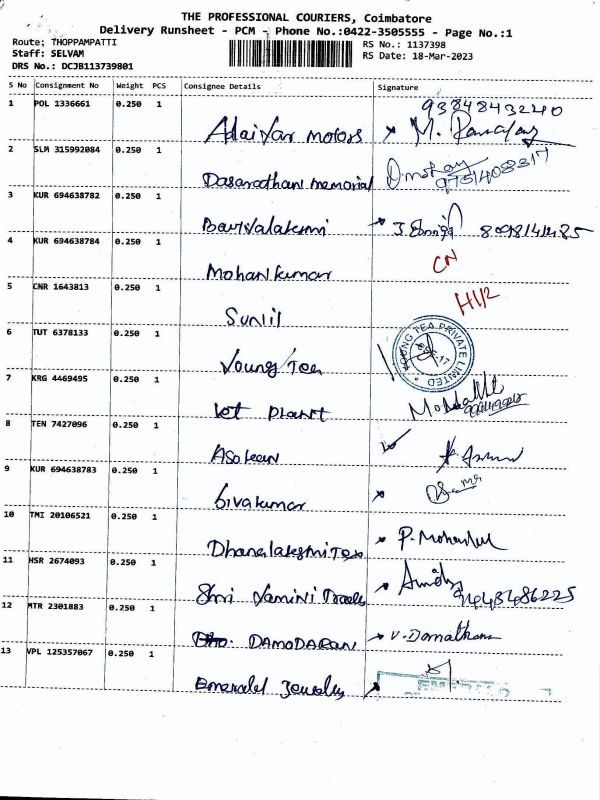 THE PROFESSIONAL COURIERS, Coimbatore
Delivery Runsheet - PCM - Phone No.:0422-3505555 - Page No.:1
Route: THOPPAMPATTI
Staff: SELVAM
DRS No.: DCJB113739801
RS No.: 1137398
RS Date: 18-Mar-2023
S No Consignment No Weight PCS Consignee Details Signature
1 POL 1336661 0.250 1 Adaiyar motors 9384843240
2 SLM 315992084 0.250 1 Dasaradhan memorial 9751408317
3 KUR 694638782 0.250 1
4 KUR 694638784 0.250 1 Mohan kumar CN
5 CNR 1643813 0.250 1 Sunil H1/2
6 TUT 6378133 0.250 1 Young Tea YOUNG TEA PRIVATE LIMITED
7 KRG 4469495 0.250 1 Vet Plant
8 TEN 7427096 0.250 1 Asokan
9 KUR 694638783 0.250 1 Sivakumar
10 TMI 20106521 0.250 1 Dhanalakshmi Tex
11 HSR 2674093 0.250 1 Shri Yamini Traders
12 MTR 2301883 0.250 1 DAMODARAN
13 VPL 125357067 0.250 1 Emerald Jewelry